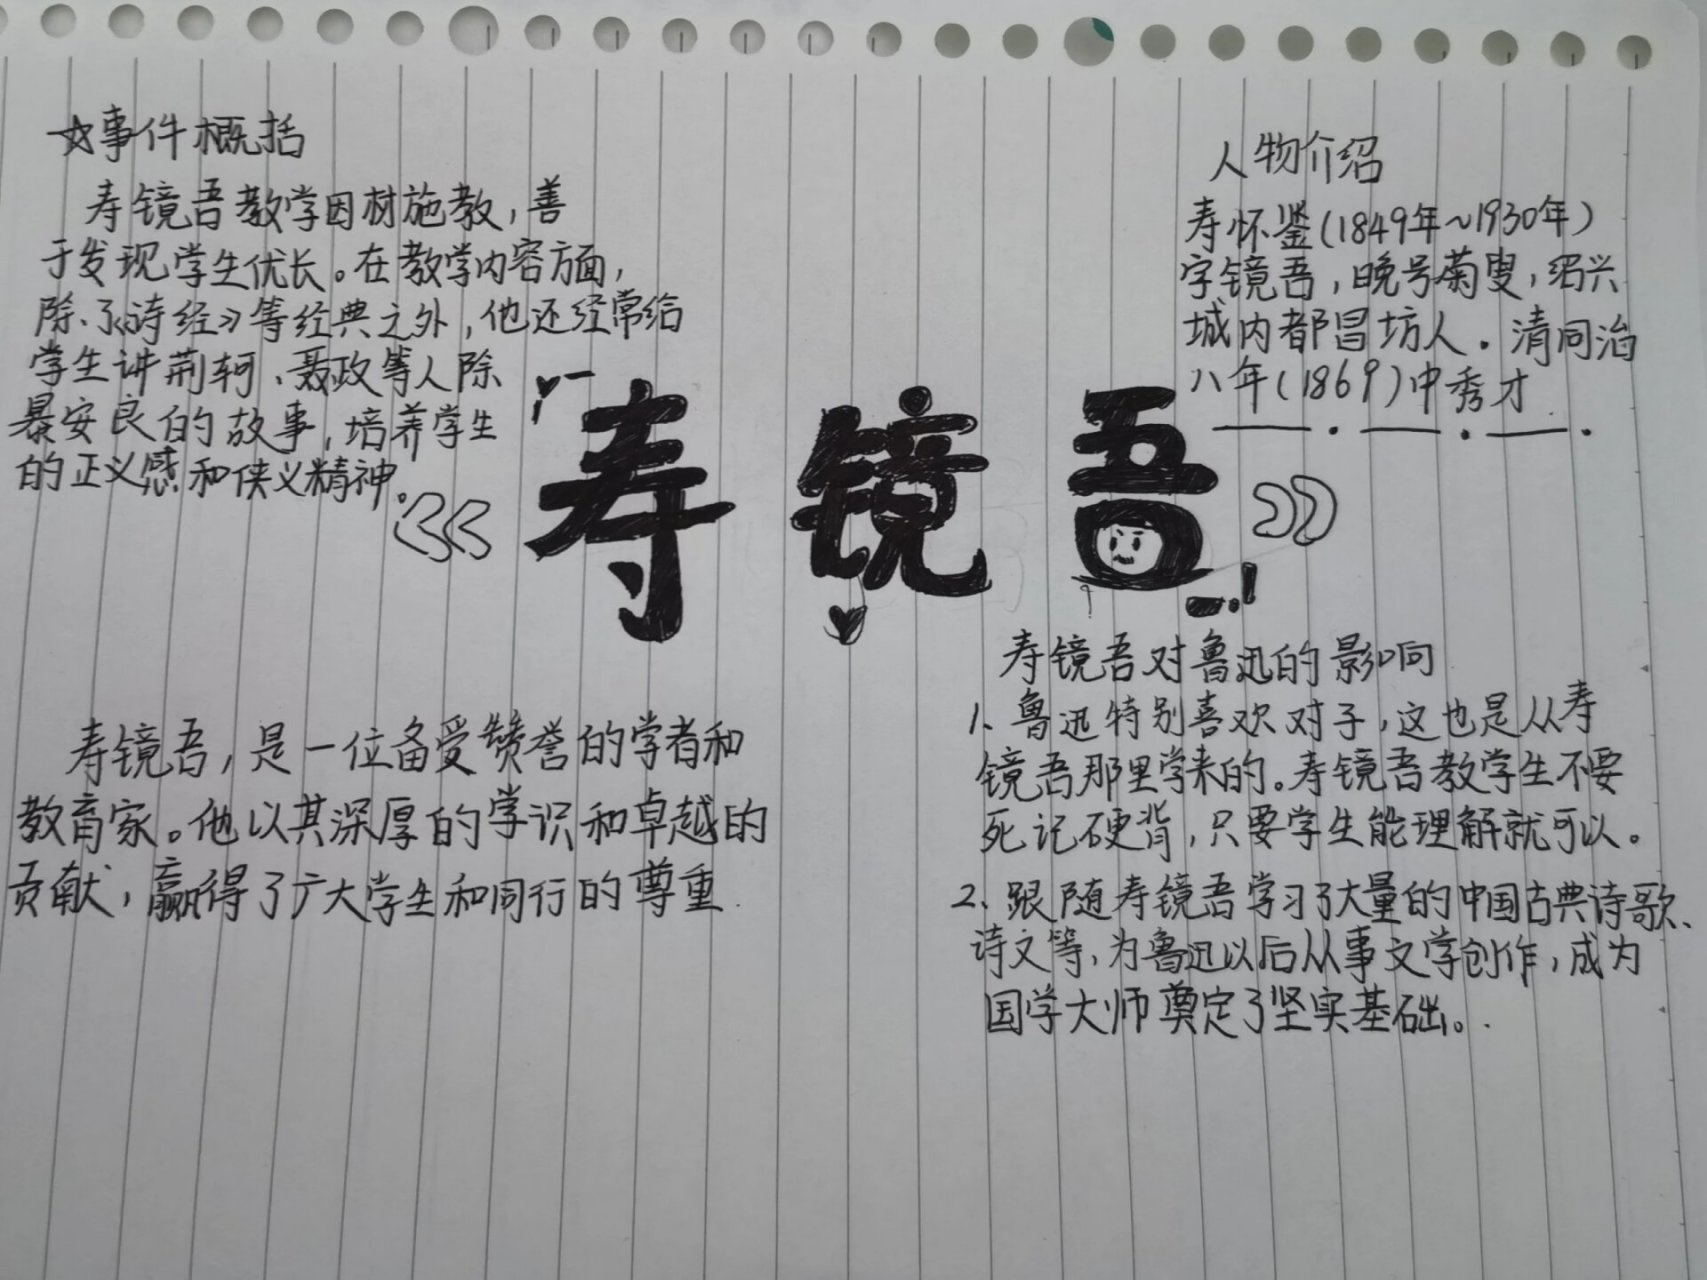 ☆事件概括
寿镜吾教学因材施教,善
于发现学生优长。在教学内容方面,
除了《诗经》等经典之外,他还经常给
学生讲荆轲、聂政等人除
暴安良的故事,培养学生
的正义感和侠义精神。
人物介绍
寿怀鉴(1849年~1930年)
字镜吾,晚号菊叟,绍兴
城内都昌坊人。清同治
八年(1869)中秀才
《寿镜吾》
寿镜吾,是一位备受赞誉的学者和
教育家。他以其深厚的学识和卓越的
贡献,赢得了广大学生和同行的尊重.
寿镜吾对鲁迅的影响
1、鲁迅特别喜欢对子,这也是从寿
镜吾那里学来的。寿镜吾教学生不要
死记硬背,只要学生能理解就可以。
2、跟随寿镜吾学习了大量的中国古典诗歌、
诗文等,为鲁迅以后从事文学创作,成为
国学大师奠定了坚实基础。